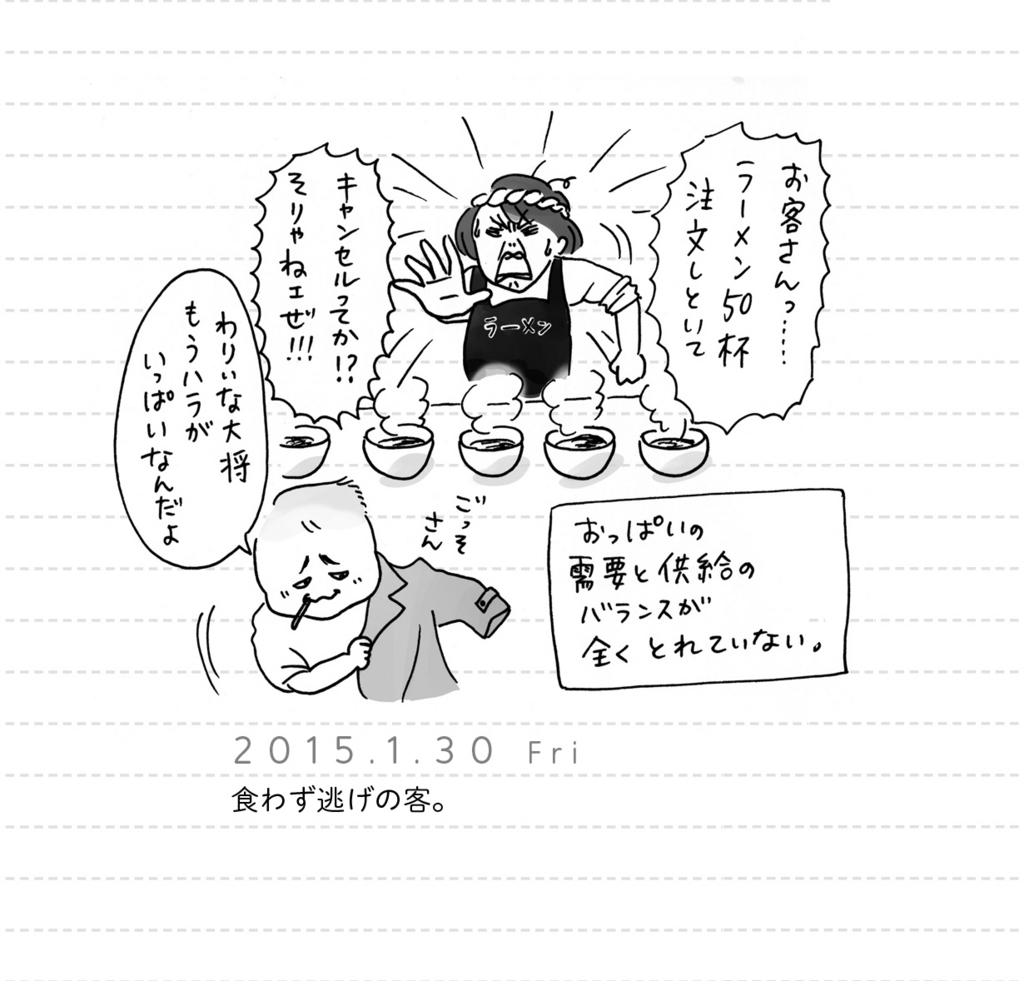 お客さんっ……
ラーメン50杯
注文しといて
キャンセルってか!?
そりゃねェぜ!!!
ラーメン
わりぃな大将
もうハラが
いっぱいなんだよ
ごっそ
さん
おっぱいの
需要と供給の
バランスが
全くとれていない。
2015.1.30 Fri
食わず逃げの客。